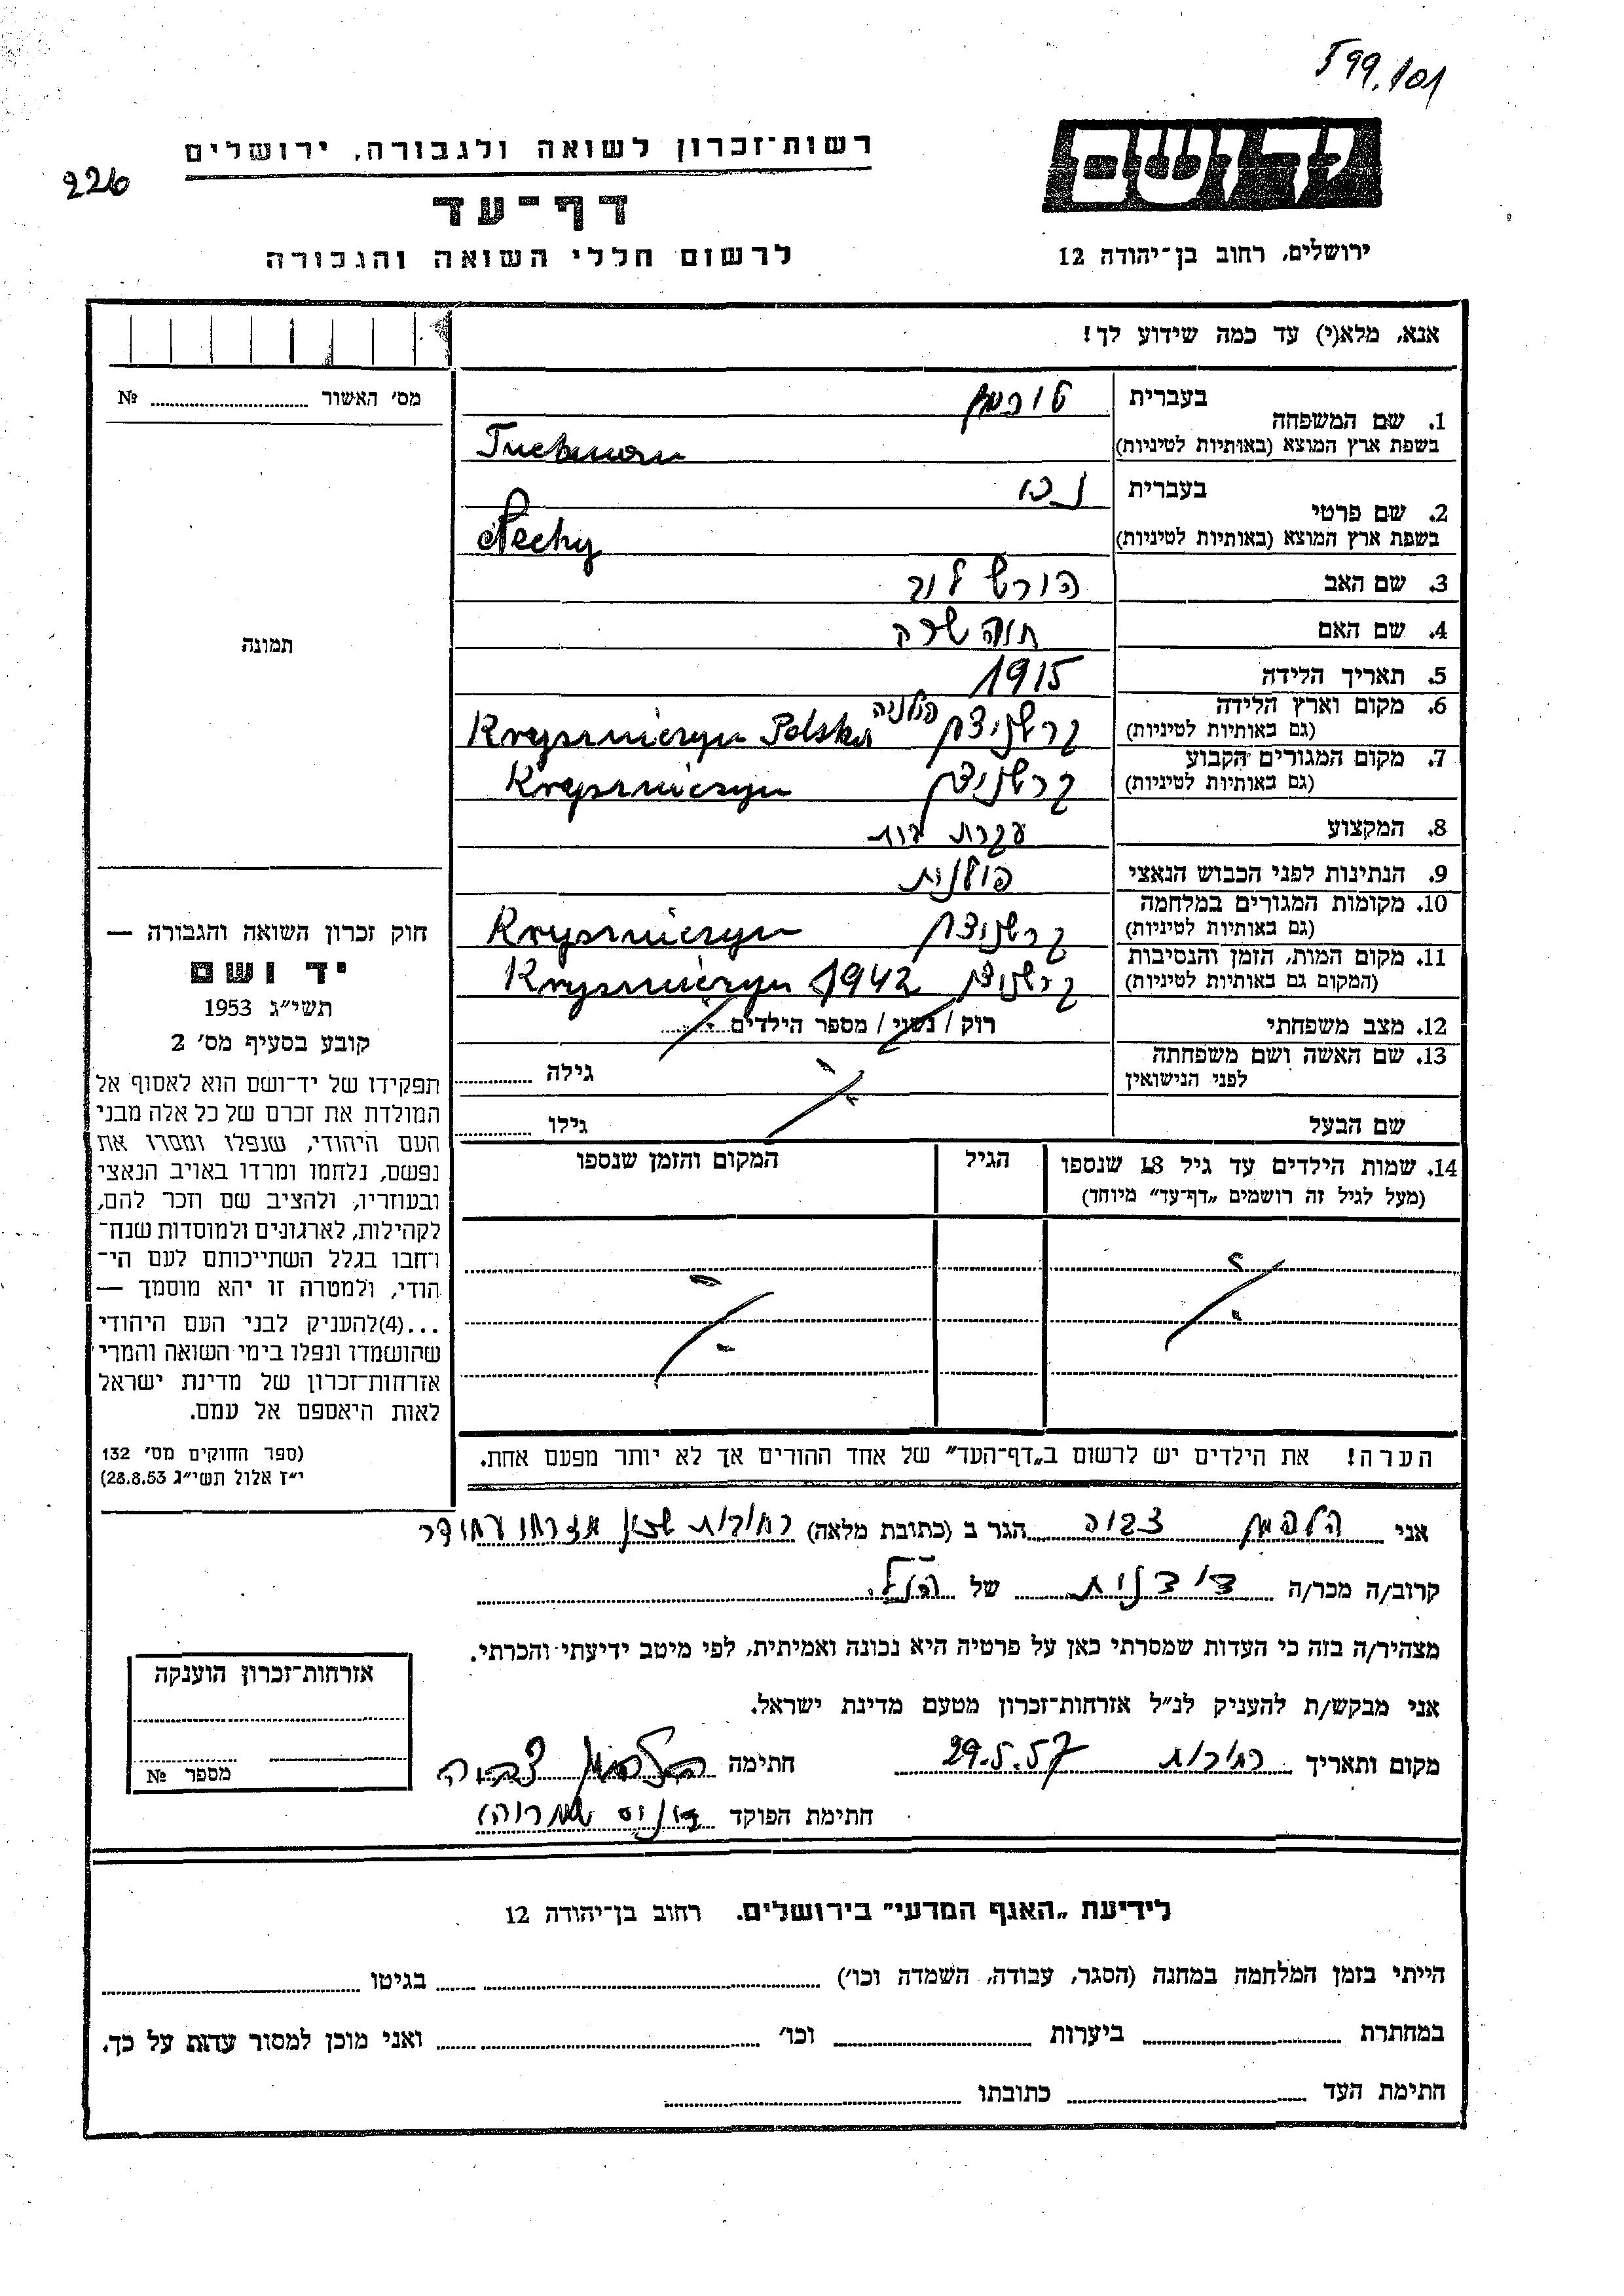 599.101
226
יד ושם
רשות־זכרון לשואה ולגבורה, ירושלים
דף־עד
לרשום חללי השואה והגבורה
ירושלים, רחוב בן־יהודה 12
אנא, מלא(י) עד כמה שידוע לך!
מס׳ האשור № 
בעברית
1. שם המשפחה
בשפת ארץ המוצא (באותיות לטיניות)
טוכמן
Tuchman
בעברית נכי
2. שם פרטי
בשפת ארץ המוצא (באותיות לטיניות) Nechy
3. שם האב הורש
4. שם האם חוה שרה
5. תאריך הלידה 1915
6. מקום וארץ הלידה
(גם באותיות לטיניות) קרשניצין פולניה Krysniczyn Polska
7. מקום המגורים הקבוע
(גם באותיות לטיניות) קרשניצין Krysniczyn
8. המקצוע עקרת בית
9. הנתינות לפני הכבוש הנאצי פולנית
10. מקומות המגורים במלחמה
(גם באותיות לטיניות) קרשניצין Krysniczyn
11. מקום המות, הזמן והנסיבות
(המקום גם באותיות לטיניות) קרשניצין 1942 Krysniczyn
12. מצב משפחתי רוק / נשוי / מספר הילדים
13. שם האשה ושם משפחתה
לפני הנישואין גילה
שם הבעל גילו
14. שמות הילדים עד גיל 18 שנספו
(מעל לגיל זה רושמים „דף־עד״ מיוחד)
הגיל
המקום והזמן שנספו
הערה! את הילדים יש לרשום ב„דף־העד״ של אחד ההורים אך לא יותר מפעם אחת.
תמונה
חוק זכרון השואה והגבורה —
יד ושם
תשי״ג 1953
קובע בסעיף מס׳ 2
תפקידו של יד־ושם הוא לאסוף אל
המולדת את זכרם של כל אלה מבני
העם היהודי, שנפלו ומסרו את
נפשם, נלחמו ומרדו באויב הנאצי
ובעוזריו, ולהציב שם וזכר להם,
לקהילות, לארגונים ולמוסדות שנח־
רחבו בגלל השתייכותם לעם הי־
הודי, ולמטרה זו יהא מוסמך —
...(4)להעניק לבני העם היהודי
שהושמדו ונפלו בימי השואה והמרי
אזרחות־זכרון של מדינת ישראל
לאות היאספם אל עמם.
(ספר החוקים מס׳ 132
י״ז אלול תשי״ג 28.8.53)
אני הלפמן צביה הגר ב (כתובת מלאה) רחובות
קרוב/ה מכר/ה דודנית של הנ״ל
מצהיר/ה בזה כי העדות שמסרתי כאן על פרטיה היא נכונה ואמיתית, לפי מיטב ידיעתי והכרתי.
אני מבקש/ת להעניק לנ״ל אזרחות־זכרון מטעם מדינת ישראל.
מקום ותאריך רחובות 29.5.57 חתימה הלפמן צביה
חתימת הפוקד
אזרחות־זכרון הוענקה
מספר №
לידיעת „האגף המדעי״ בירושלים. רחוב בן־יהודה 12
הייתי בזמן המלחמה במחנה (הסגר, עבודה, השמדה וכו׳) בגיטו
במחתרת ביערות וכו׳ ואני מוכן למסור עדות על כך.
חתימת העד כתובתו